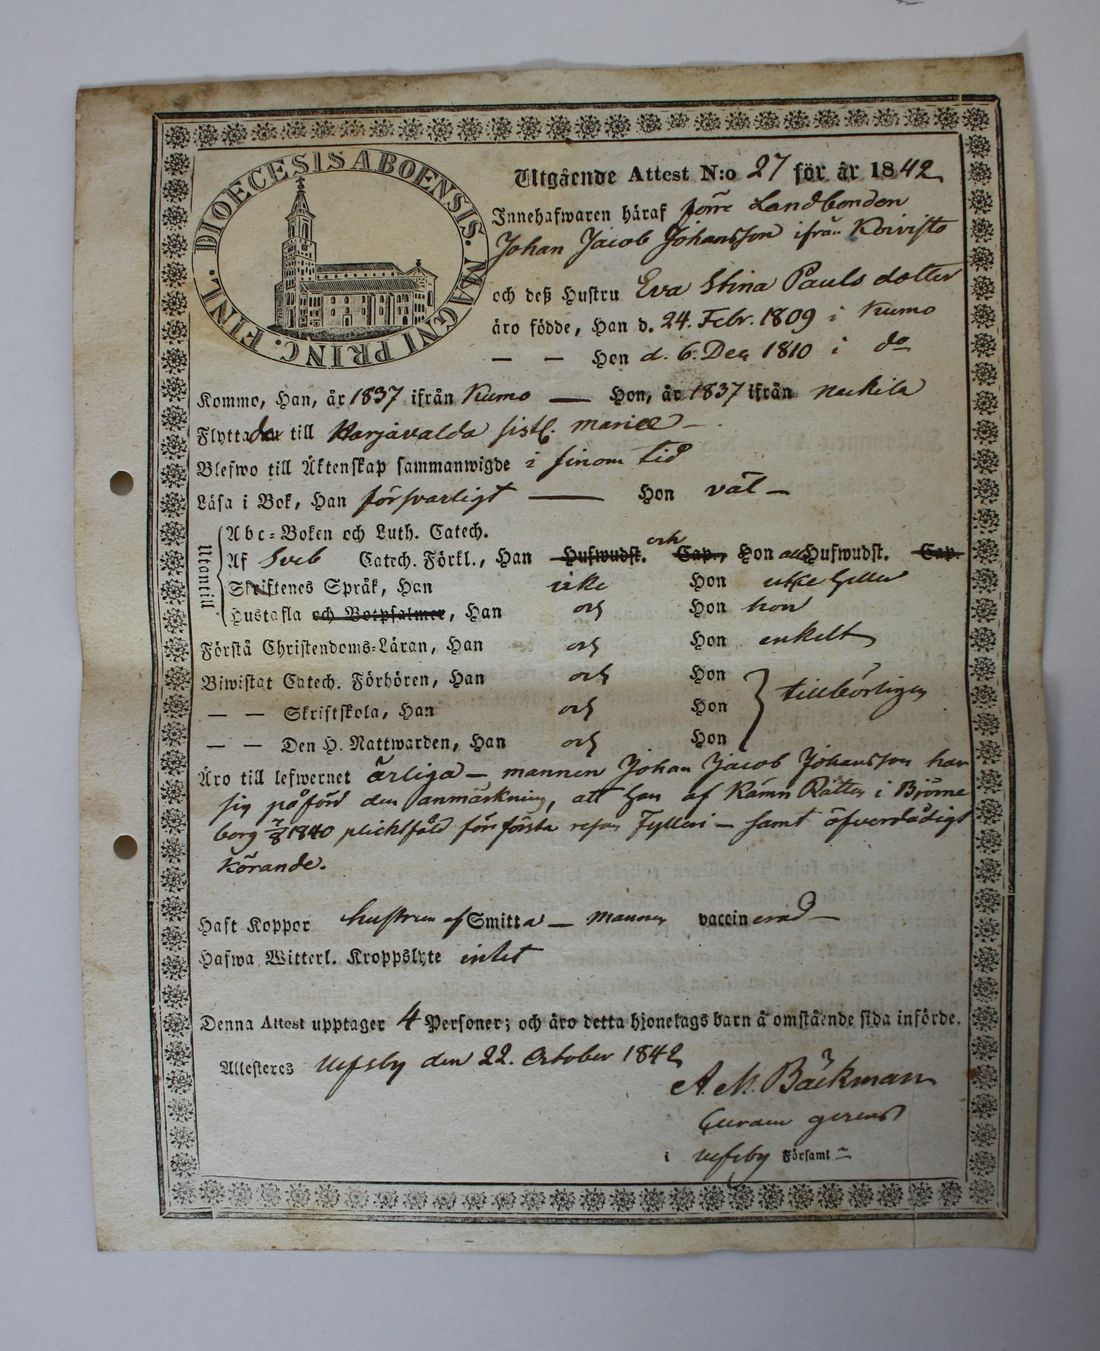 DIOECESIS ABOENSIS. MAGNI PRINC. FINL.
Utgående Attest N:o 27 för år 1842
Innehafwaren häraf förre Landbonden
Johan Jacob Johansson ifrån Koivisto
och deß Hustru Eva Stina Pauls dotter
äro födde, Han d. 24. Febr. 1809 i Kumo
— — Hon d. 6. Dec. 1810 i do
Kommo, Han, år 1837 ifrån Kumo — Hon, år 1837 ifrån Nackila
Flyttade till Harjavalda sistl. Mariæ —
Blefwo till Äktenskap sammanwigde i sinom tid
Läsa i Bok, Han försvarligt — Hon väl —
Utantill
Abc-Boken och Luth. Catech.
Af Sveb Catech. Förkl., Han Hufwudst. och Cap., Hon Hufwudst. Cap.
Skriftenes Språk, Han icke Hon icke heller
Hustafla och Botpsalmer, Han och Hon hon
Förstå Christendoms-Läran, Han och Hon enkelt
Biwistat Catech. Förhören, Han och Hon
— — Skriftskola, Han och Hon tillbörligen
— — Den H. Nattwarden, Han och Hon
Äro till lefwernet ärliga — mannen Johan Jacob Johansson har
sig påförd den anmärkning, att han af Kämn Rätten i Björne
borg 7/8 1840 plichtfäld för första resan Fylleri — samt öfverdådigt
körande.
Haft Koppor hustrun af Smitta — mannen vaccinerad —
Hafwa Witterl. Kroppslyte intet
Denna Attest upptager 4 Personer; och äro detta hjonelags barn å omstående sida införde.
Attesteres Ulfsby den 22. October 1842
A. M. Bäckman
Curam gerens
i Ulfsby Församl